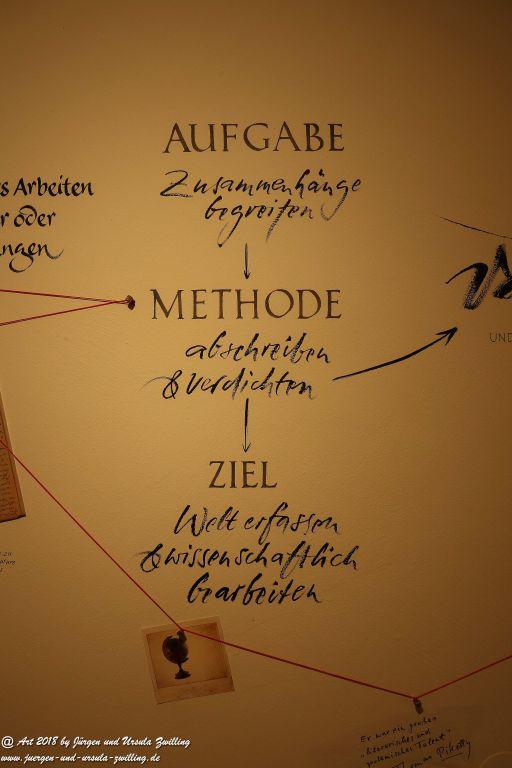 AUFGABE
Zusammenhänge
begreifen
s Arbeiten
r oder
ngen
METHODE
abschreiben
& verdichten
UND
ZIEL
Welt erfassen
& wissenschaftlich
bearbeiten
Er war ein großes
"literarisches und
Talent"
@ Art 2018 by Jürgen und Ursula Zwilling
www.juergen-und-ursula-zwilling.de